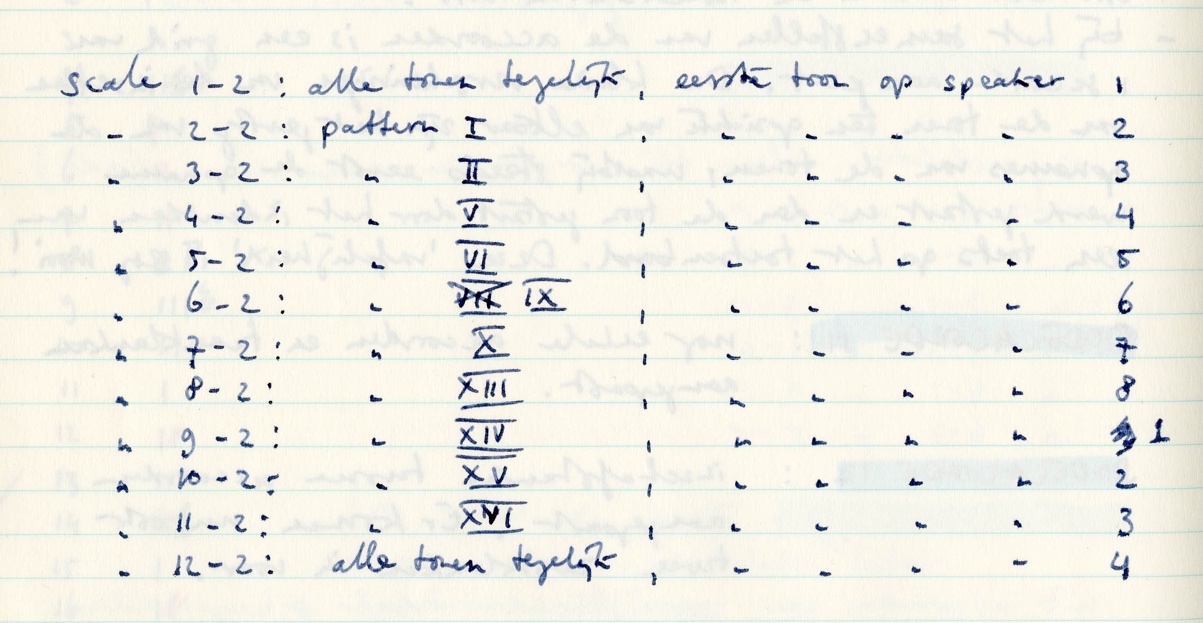 Scale 1-2 : alle tonen tegelijk, eerste toon op speaker 1
" 2-2 : pattern I , " " " " 2
" 3-2 : " II , " " " " 3
" 4-2 : " V , " " " " 4
" 5-2 : " VI , " " " " 5
" 6-2 : " IX , " " " " 6
" 7-2 : " X , " " " " 7
" 8-2 : " XIII , " " " " 8
" 9-2 : " XIV , " " " " 1
" 10-2 : " XV , " " " " 2
" 11-2 : " XVI , " " " " 3
" 12-2 : alle tonen tegelijk , " " " " 4